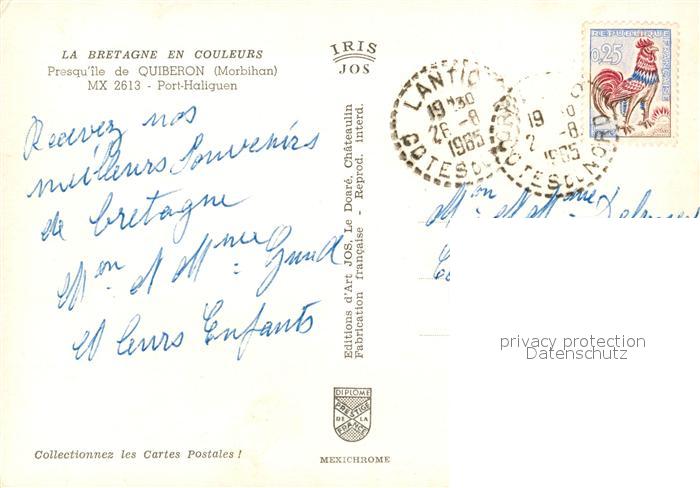 LA BRETAGNE EN COULEURS
Presqu'île de QUIBERON (Morbihan)
MX 2613 - Port-Haliguen
Recevez nos
meilleurs Souvenirs
de bretagne
Mon et Mme
et leurs Enfants
Collectionnez les Cartes Postales !
IRIS
JOS
Editions d'Art JOS. Le Doaré, Châteaulin
Fabrication française - Reprod. interd.
DIPLOME
PRESTIGE
DE LA
FRANCE
MEXICHROME
LANTIC
19 H30
26 -8
1965
COTES DU NORD
19
2 -8
1965
COTES DU NORD
0,25
Mon et Mme
privacy protection
Datenschutz